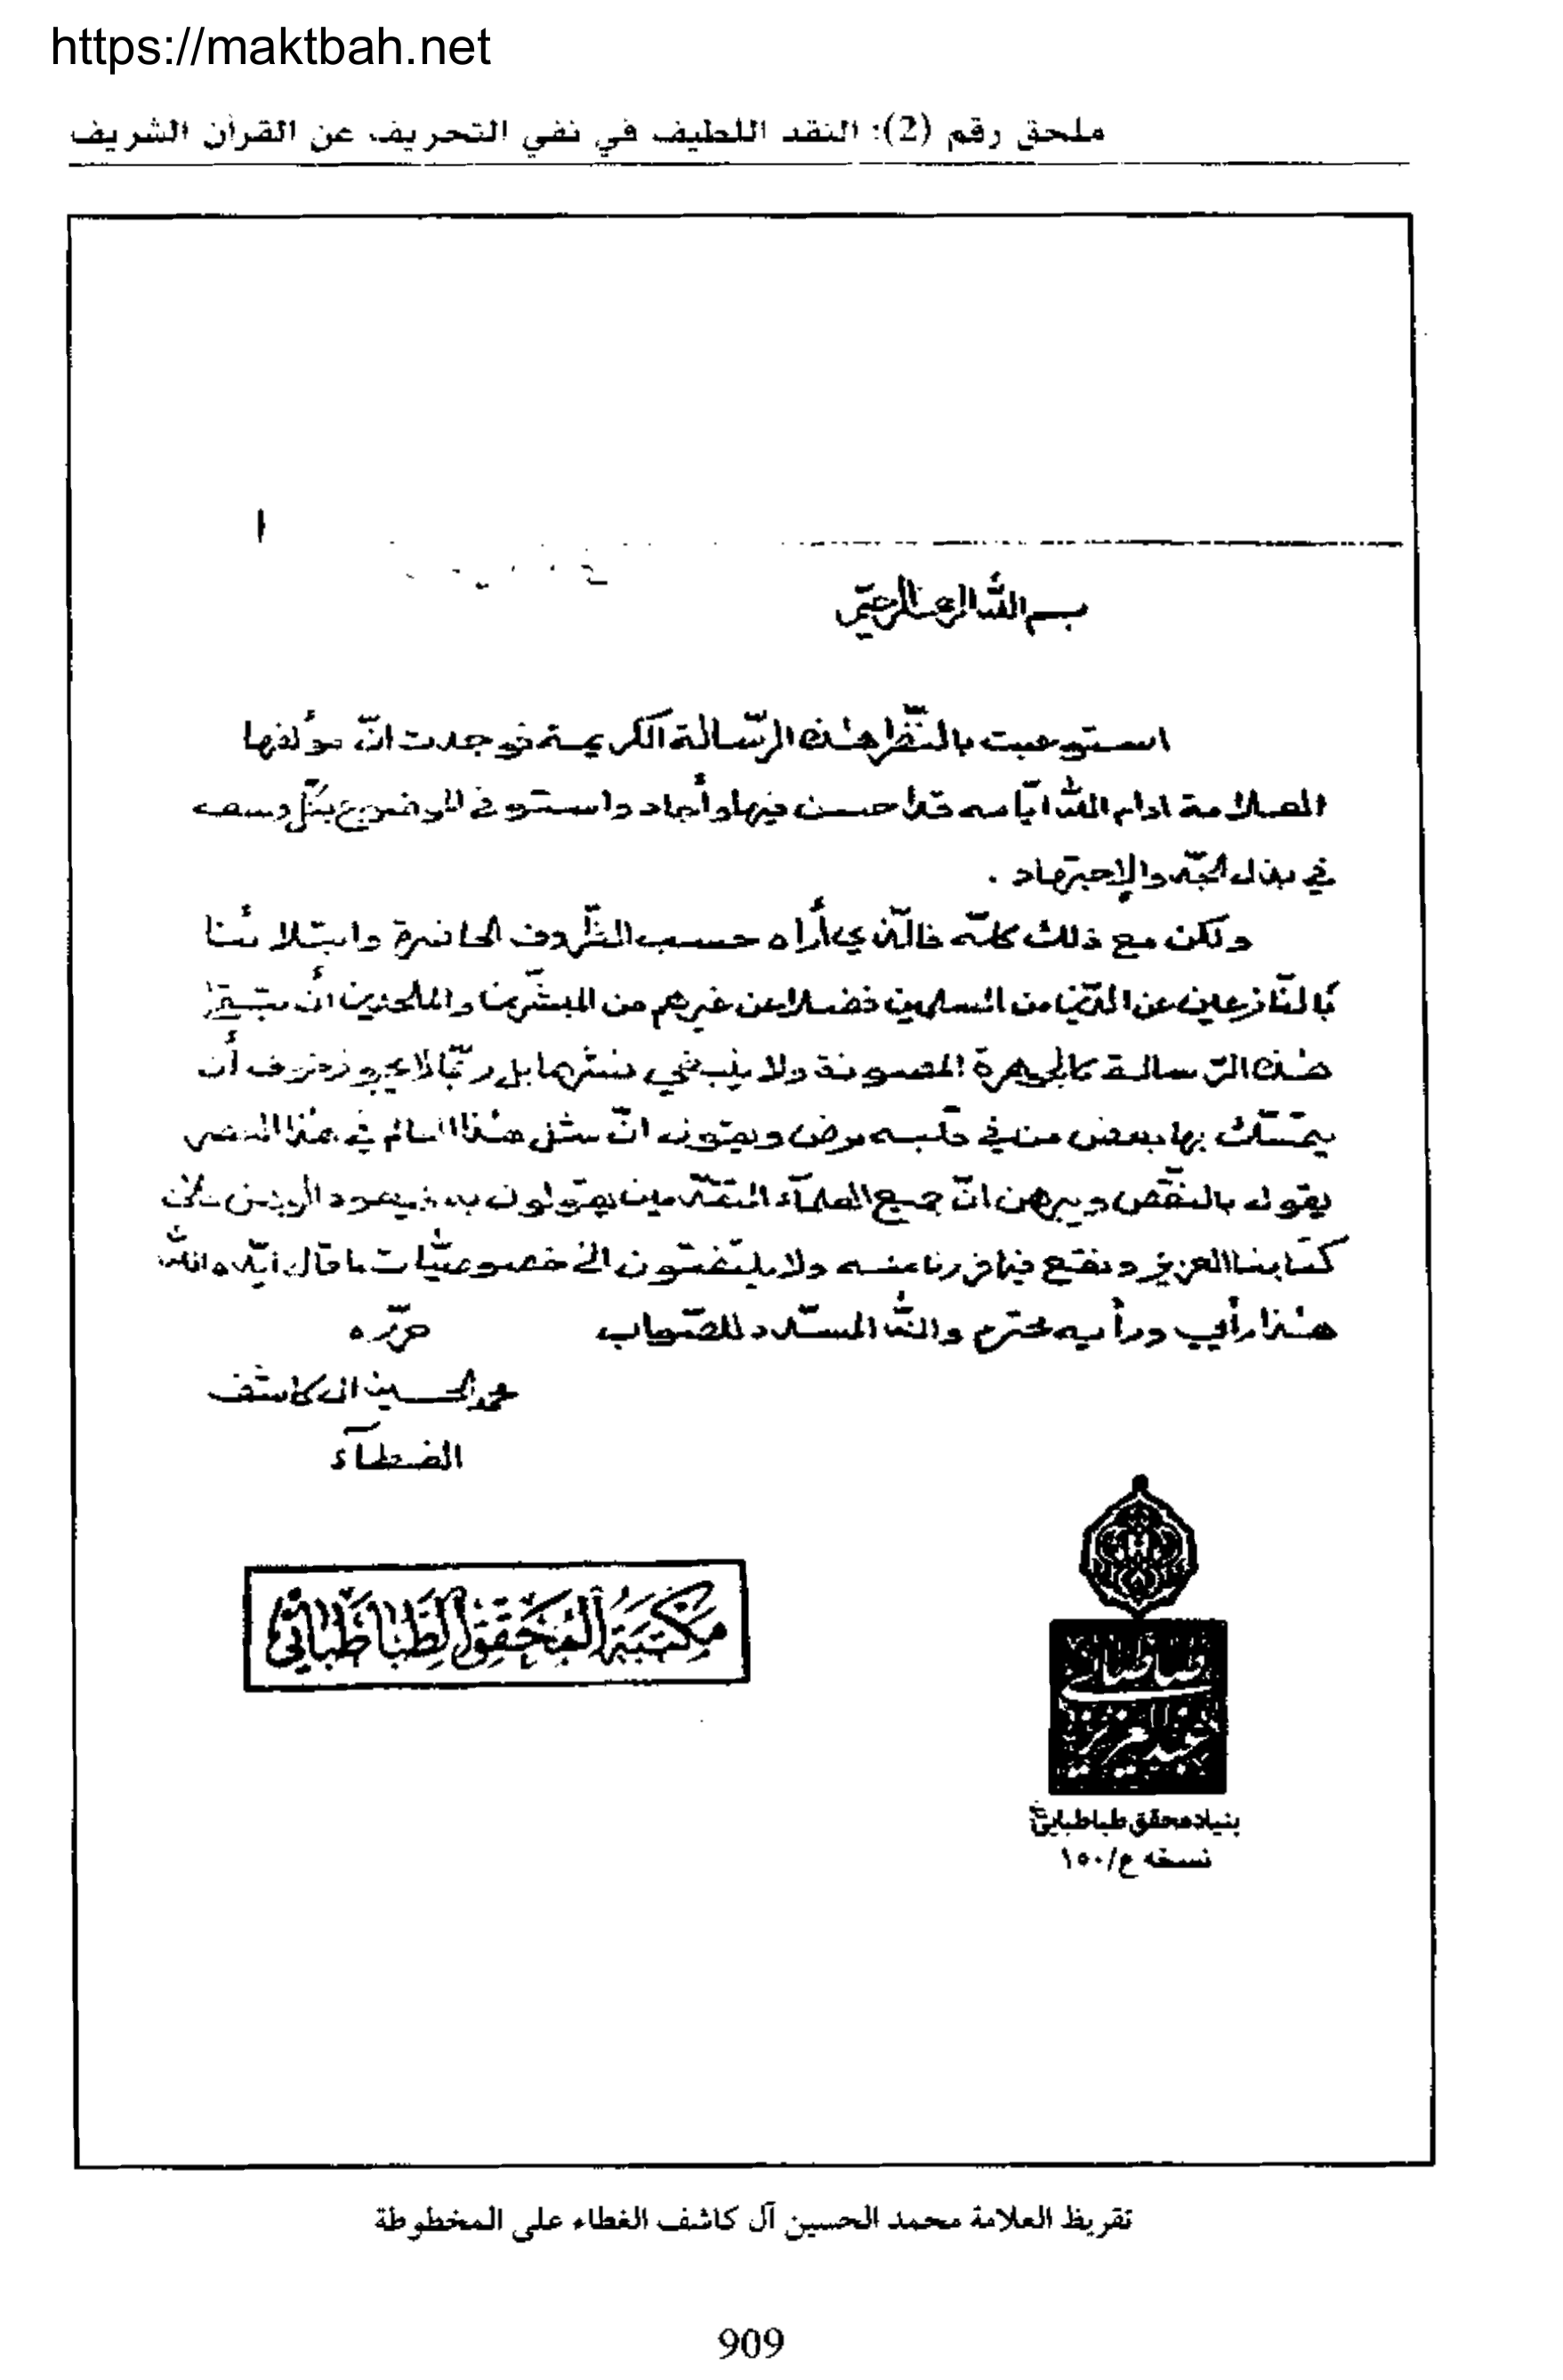 https://maktbah.net
ملحق رقم (2): النقد اللطيف في نفي التحريف عن القرآن الشريف
بسم الله الرحمن الرحيم
استوعبت بالنّظر هذه الرّسالة الكريمة فوجدت انّ مؤلفها
العلامة ادام الله ايّامه قد احسن فيها وأجاد واستوفى الموضوع بكلّ وسعه
في بذل الجهد والإجتهاد .
ولكن مع ذلك كلّه فالّذي أراه حسب الظّروف الحاضرة وابتلائنا
بالنّازعين عن الدّين من المسلمين فضلا عن غيرهم من المبشّرين والملحدين أن تبقى
هذه الرّسالة كالجوهرة المصونة ولا ينبغي نشرها بل ربّما لا يجوز خوف أن
يتمسّك بها بعض من في قلبه مرض ويقول انّ مثل هذا العالم في هذا العصر
يقول بالنّقص ويبرهن انّ جميع العلمآء المتقدّمين يقولون به فيعود الوهن على
كتابنا العزيز ونقع فيما فررنا منه ولا يلتفتون الى خصوصيّات ما قال ايّده الله
هذا رأيي ورأيه محترم والله المسدّد للصّواب حرّره
محمد الحسين ال كاشف
الغطآء
مكتبة المحقق الطباطبائي
طباطبائي
عبدالعزيز
بنياد محقق طباطبايى
نسخه ع/١٥٠
تقريظ العلامة محمد الحسين آل كاشف الغطاء على المخطوطة
909